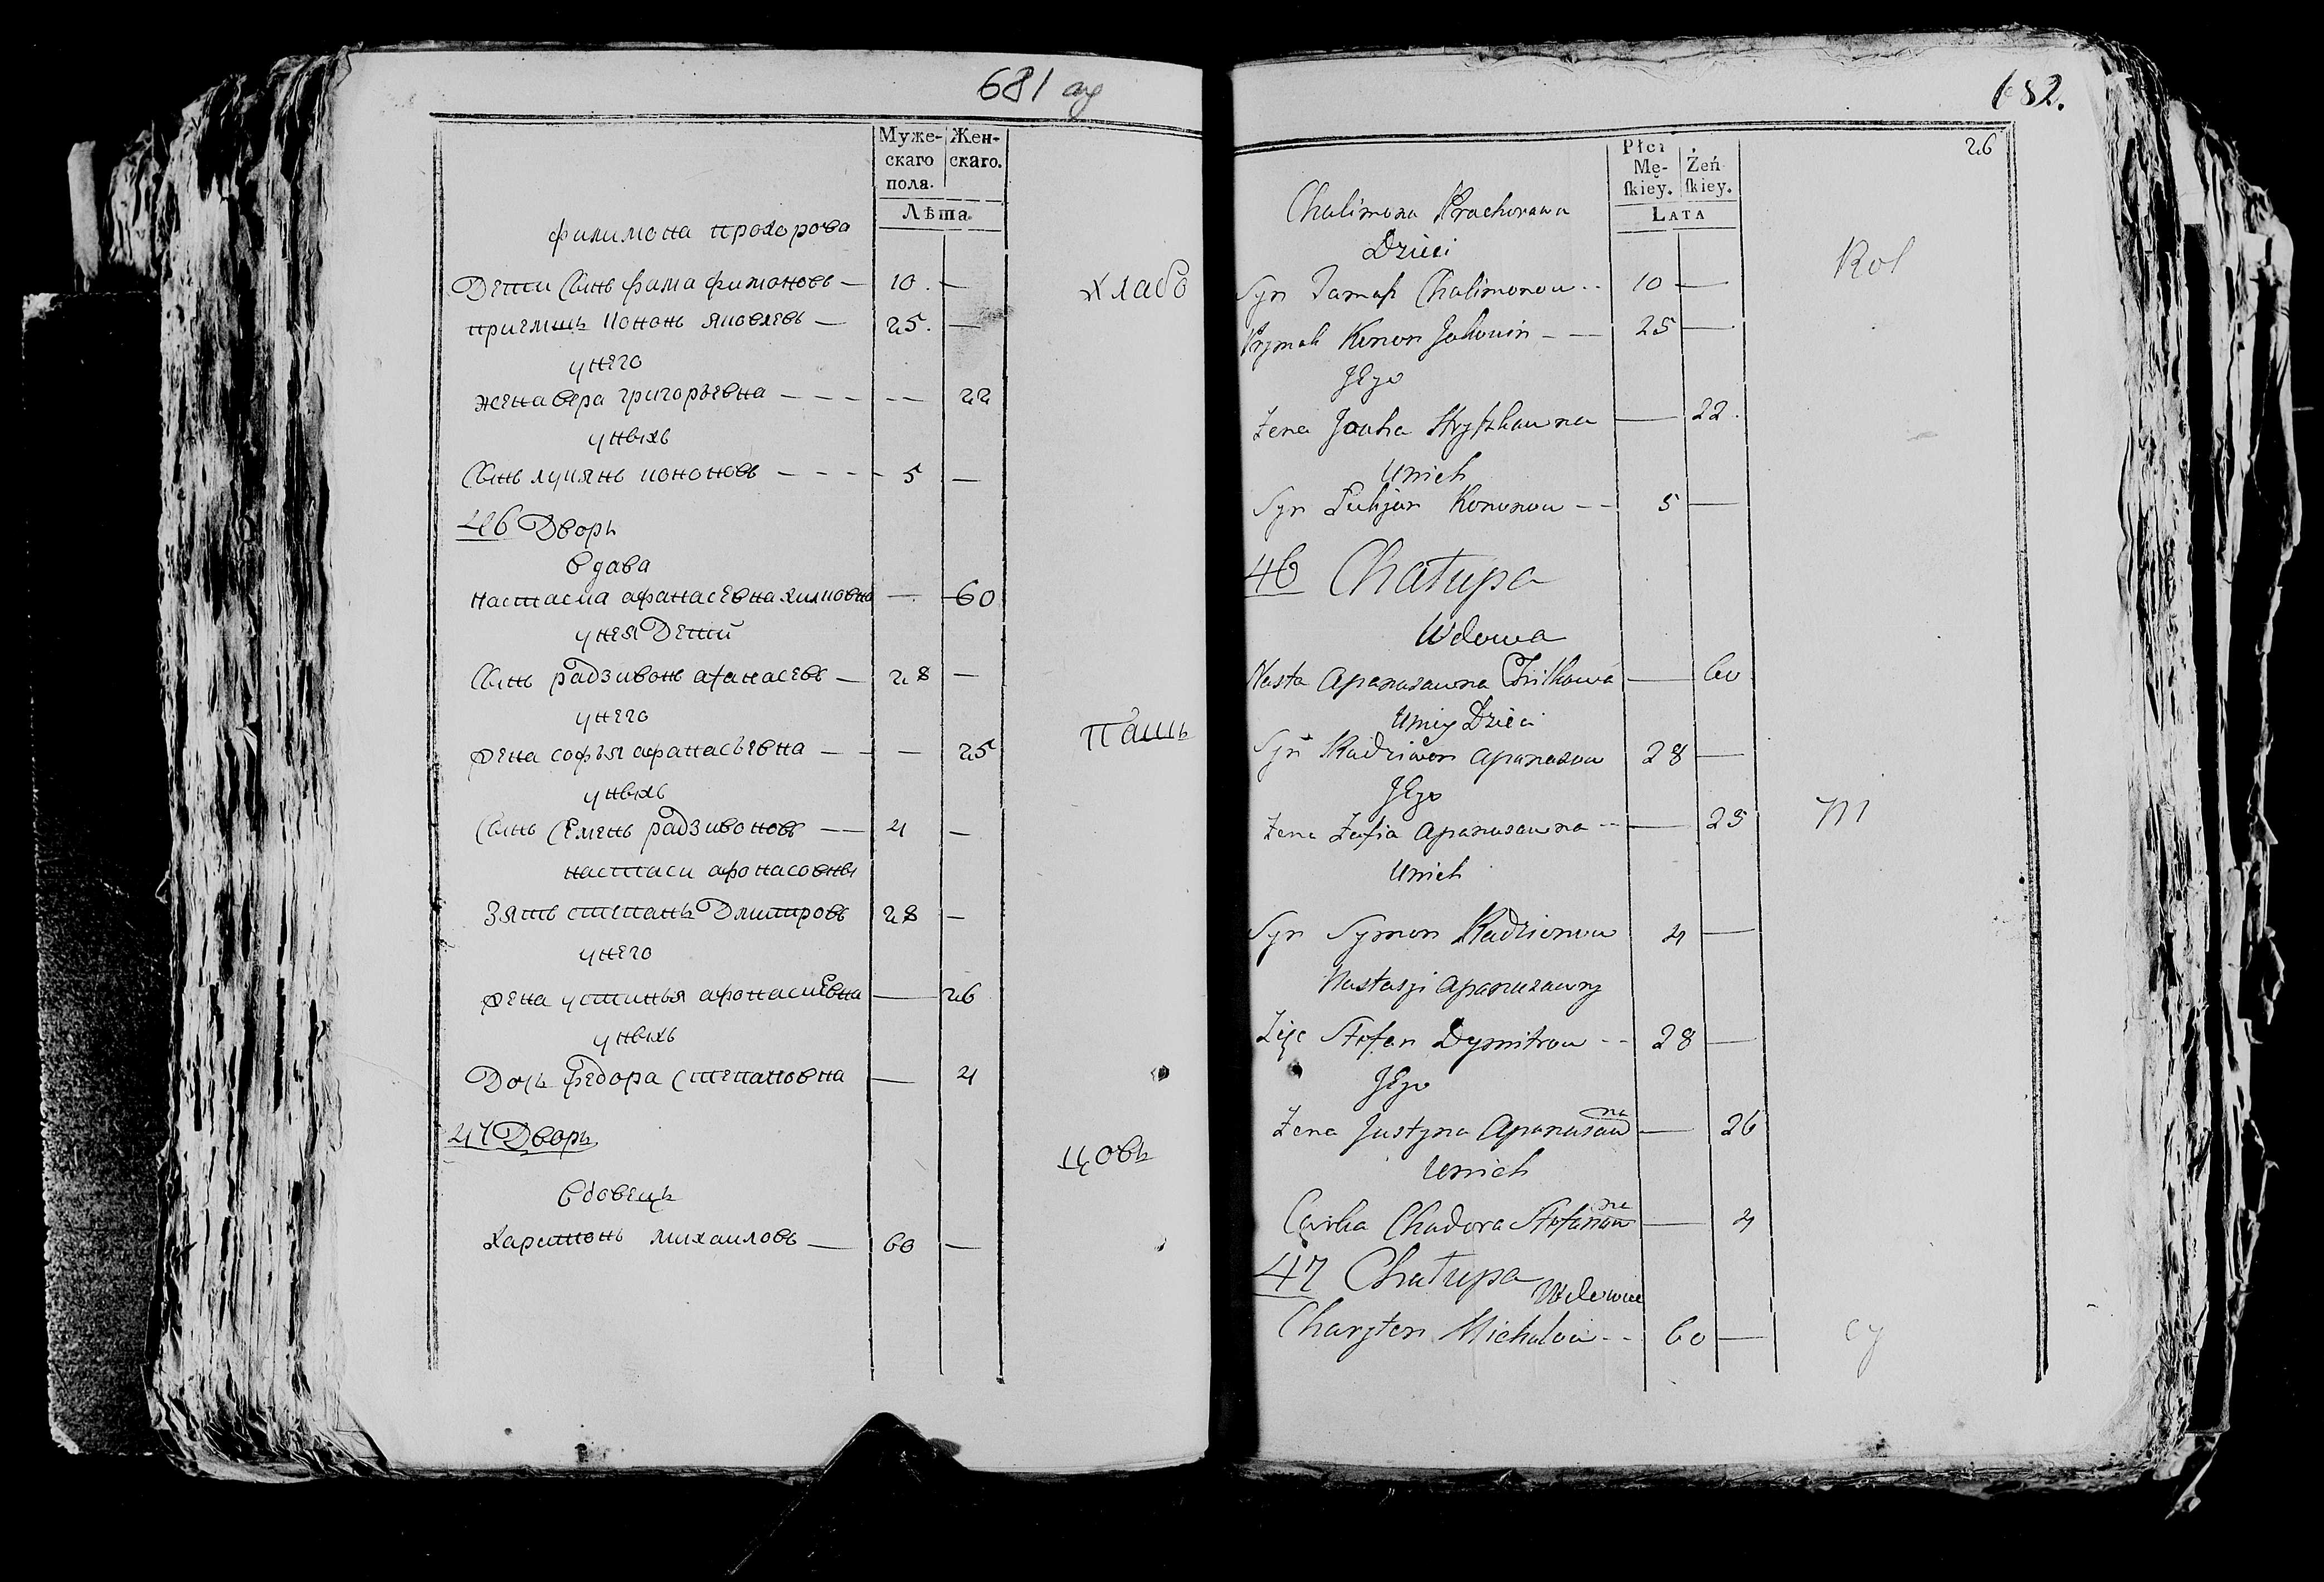 681 ад
Муже-
скаго
пола.
Жен-
скаго.
Лѣта.
филимона прохорова
Дети Сынъ фама фимоновъ — 10. —
приемшъ Кононъ яковлевъ — 25. —
унего
жена вера григорьевна — — — -- 22
уныхъ
Сынъ лукянъ кононовъ — — — 5 —
46 Дворъ
вдава
настасиа афанасевна — 60
унея Дети
Сынъ радзивонъ афанасевъ — 28 —
унего
жена софья афанасьевна — — — 25
уныхъ
Сынъ Семенъ радзивоновъ — 4 —
настаси афонасовны
Зять степанъ Дмитровъ 28 —
унего
жена устинья афонасиевна — 26
уныхъ
Дочъ федора степановна — 4
47 Дворъ
вдовецъ
Харитонъ михаиловъ — 60 —
хлабо
пашь
цовъ
682.
26
Płci
Mę-
ſkiey.
Żeń
ſkiey.
LATA
Chalimona Prachorawa
Dzieci
Syn Tamaſz Chalimonow -- 10 —
Prymak Konon Jakowin - — 25 —
Jego
Zena Jauha — 22.
Unich
Syn Łukjan Kononow - - 5 —
46 Chałupa
Wdowa
Nasta Apanasawna — 60
Uniey Dzieci
Syn Radziwon Apanasow 28 —
Jego
Zena Zofia Apanasawna -- — 25
Unich
Syn Symon Radzionow 4 —
Nastasji Apanasawny
Zięc Stefan Dymitrow -- 28 —
Jego
Zena Justyna Apanasawna — 26
Unich
Corka Chadora Stefanowna — 4
47 Chałupa
Wdowiec
Charyton Michalow -- 60 —
Rol
m
cy